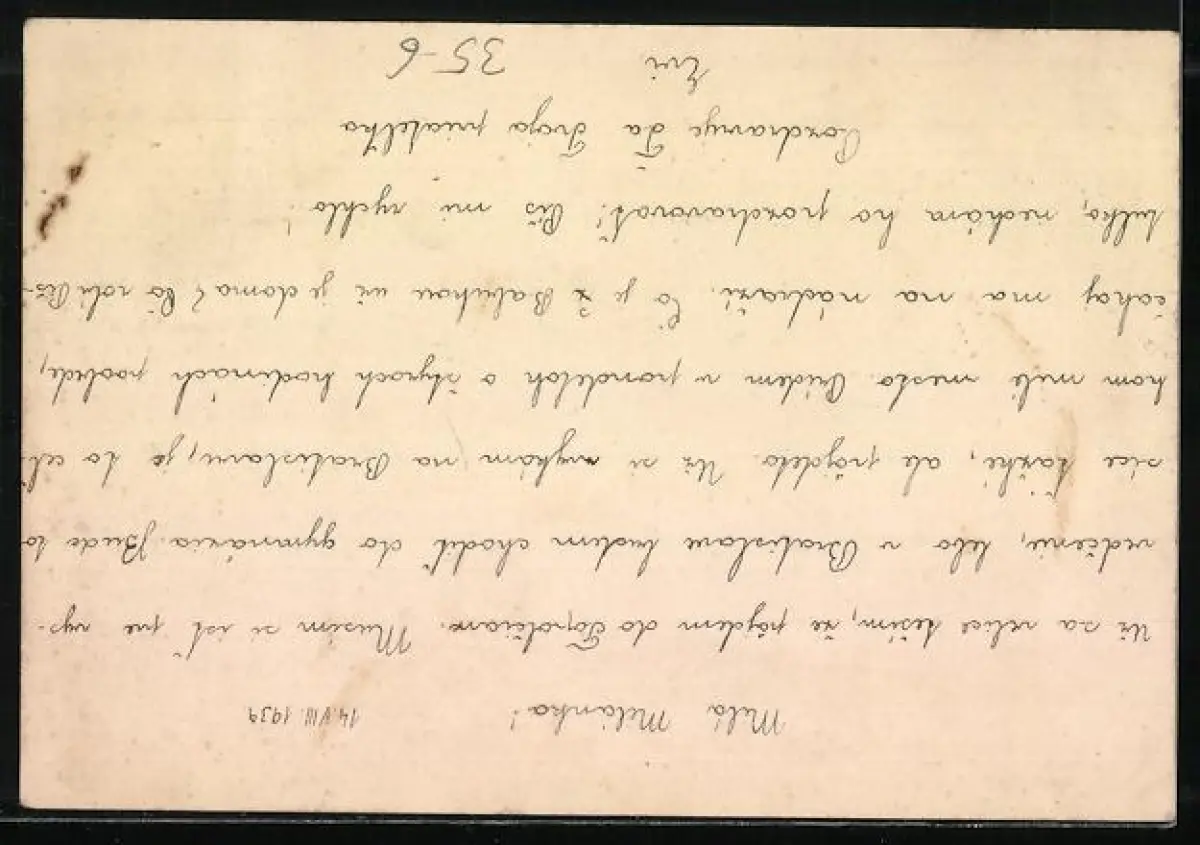 Milá Milánka! 14.VIII.1939
Už sa velice teším, že pôjdem do Topolčian. Musím si ísť pre vys-
vedčenie, lebo v Bratislave budem chodiť do gymnázia. Bude to
síce ťažké, ale pôjde to. Už si zvykám na Bratislavu, je to cel-
kom milé mesto. Prídem v pondelok o štyroch hodinách poobede,
čakaj ma na nádraží. Čo je z Baluhou už je doma? Čo robí Piš-
tulko, nechám ho pozdravovať! Píš mi rychlo!
Pozdravuje Ťa Tvoja priateľka
Evi 35-6